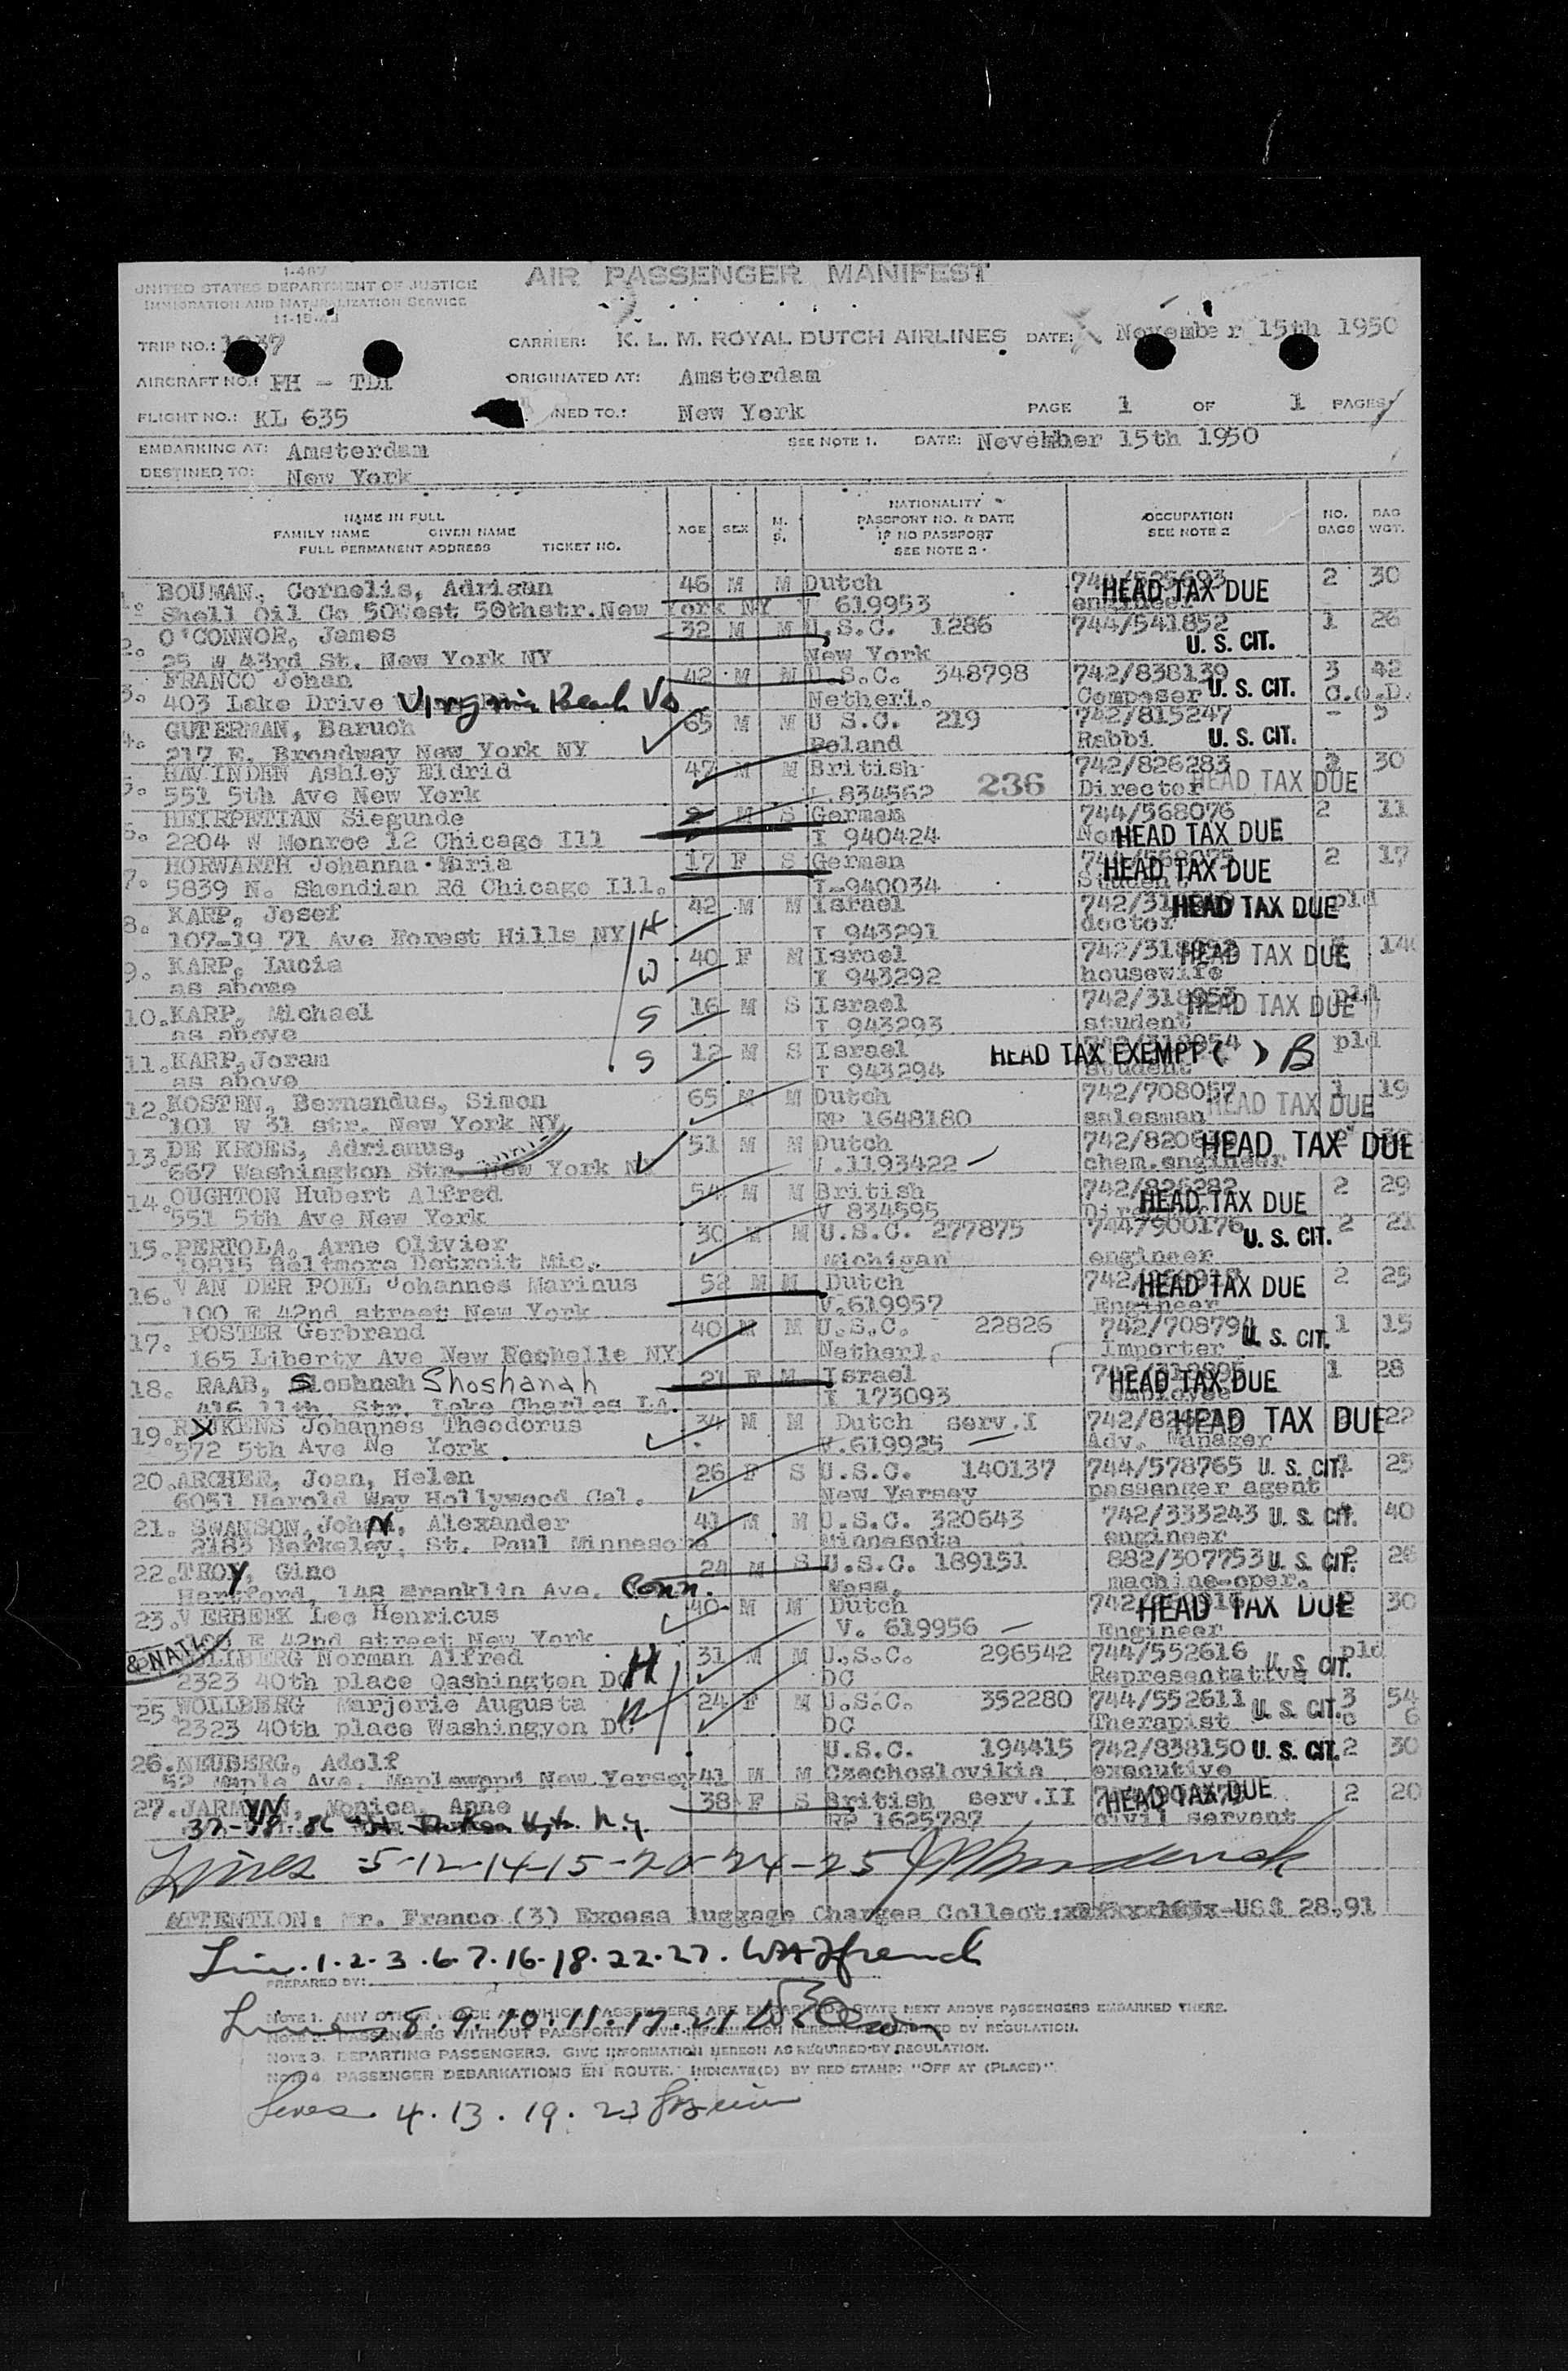 I-467
UNITED STATES DEPARTMENT OF JUSTICE
IMMIGRATION AND NATURALIZATION SERVICE
AIR PASSENGER MANIFEST
TRIP NO.:
CARRIER: K. L. M. ROYAL DUTCH AIRLINES DATE: November 15th 1950
AIRCRAFT NO.: PH - TDI
ORIGINATED AT: Amsterdam
FLIGHT NO.: KL 635
NED TO.: New York
PAGE 1 OF 1 PAGES
EMBARKING AT: Amsterdam
SEE NOTE 1. DATE: November 15th 1950
DESTINED TO: New York
NAME IN FULL
FAMILY NAME GIVEN NAME
FULL PERMANENT ADDRESS TICKET NO.
AGE SEX M. S.
NATIONALITY
PASSPORT NO. & DATE
IF NO PASSPORT
SEE NOTE 2
OCCUPATION
SEE NOTE 2
NO. BAGS
BAG WGT.
BOUMAN, Cornelis, Adriaan 46 M M Dutch HEAD TAX DUE 2 30
Shell Oil Co 50West 50thstr.New York NY 619953 engineer
2. O'CONNOR, James 32 M M U.S.C. 1286 744/541852 1 26
25 W 43rd St. New York NY New York U. S. CIT.
3. FRANCO Johan 42 M M U.S.C. 348798 742/838139 3 42
403 Lake Drive Virginia Beach Va Netherl. Composer U. S. CIT. C.O.D.
4. GUTERMAN, Baruch 65 M M U S.C. 219 742/815247 -
217 E. Broadway New York NY Poland Rabbi U. S. CIT.
HAVINDEN Ashley Eldrid 47 M M British 742/826283 30
551 5th Ave New York 834562 236 Director HEAD TAX DUE
Siegunde M S German 744/568076 2 11
2204 W Monroe 12 Chicago Ill I 940424 HEAD TAX DUE
7. HORWARTH Johanna Maria 17 F S German 2 17
5839 N. Shendian Rd Chicago Ill. I-940034 Student HEAD TAX DUE
8. KARP, Josef H 42 M M Israel HEAD TAX DUE pld
107-19 71 Ave Forest Hills NY I 943291 doctor
9. KARP, Lucia W 40 F M Israel HEAD TAX DUE
as above I 943292 housewife
10. KARP, Michael S 16 M S Israel HEAD TAX DUE pld
as above I 943293 student
11. KARP, Joram S 12 M S Israel HEAD TAX EXEMPT ( ) B pld
as above I 943294 student
12. KOSTEN, Bernandus, Simon 65 M M Dutch 742/708057 1 19
101 W 31 str. New York NY RP 1648180 salesman HEAD TAX DUE
13. DE KROES, Adrianus, 51 M M Dutch HEAD TAX DUE
667 Washington Str. New York NY 1193422 chem.engineer
14. OUGHTON Hubert Alfred 54 M M British 742/826282 2 29
551 5th Ave New York V 834595 HEAD TAX DUE
15. PERTOLA, Arne Olivier 30 M M U.S.C. 277875 744/900176 U. S. CIT. 2 21
19815 Beltmore Detroit Mic. Michigan engineer
16. VAN DER POEL Johannes Marinus 52 M M Dutch HEAD TAX DUE 2 25
100 E 42nd street New York V.619957 Engineer
17. POSTER Gerbrand 40 M M U.S.C. 22826 742/708794 U. S. CIT. 1 15
165 Liberty Ave New Rochelle NY Netherl. Importer
18. RAAB, Shoshanah 21 F M Israel HEAD TAX DUE 1 28
416 11th. Str. Lake Charles LA. I 173093
19. Johannes Theodorus 34 M M Dutch serv.I HEAD TAX DUE 22
572 5th Ave Ne York V.619925 Adv. Manager
20. ARCHER, Joan, Helen 26 F S U.S.C. 140137 744/578765 U. S. CIT. 25
6051 Harold Way Hollywood Cal. New Yersey passenger agent
21. SWANSON, John, Alexander 41 M M U.S.C. 320643 742/333243 U. S. CIT. 40
2183 Berkeley, St. Paul Minnesota Minnesota engineer
22. TROY, Gino 24 M S U.S.C. 189151 882/307753 U. S. CIT. 26
Hartford, 148 Franklin Ave. Conn. Mass. machine-oper.
23. VERBEEK Leo Henricus 40 M M Dutch HEAD TAX DUE 30
100 E 42nd street New York V. 619956 Engineer
& NAT
WOLLBERG Norman Alfred H 31 M M U.S.C. 296542 744/552616 U. S. CIT. pld
2323 40th place Qashington DC DC Representative
25 WOLLBERG Marjorie Augusta W 24 F M U.S.C. 352280 744/552611 U. S. CIT. 3 54
2323 40th place Washingyon DC DC Therapist c 6
26. NEUBERG, Adolf U.S.C. 194415 742/838150 U. S. CIT. 2 30
52 Maple Ave. Maplewppd New Yersey 41 M M Czechoslovikia executive
27. Monica, Anne 38 F S British serv.II HEAD TAX DUE 2 20
RP 1625787 civil servant
Lines 5-12-14-15-20-24-25
ATTENTION: Mr. Franco (3) Excess luggage Charges Collect: US$ 28.91
Line. 1.2.3.6.7.16.18.22.27.
PREPARED BY:
NOTE 1. ANY OTHER PLACE AT WHICH PASSENGERS ARE EMBARKED, STATE NEXT ABOVE PASSENGERS EMBARKED THERE.
Lines 8.9.10.11.17.21
NOTE 2. PASSENGERS WITHOUT PASSPORT, GIVE INFORMATION HEREON AS REQUIRED BY REGULATION.
NOTE 3. DEPARTING PASSENGERS. GIVE INFORMATION HEREON AS REQUIRED BY REGULATION.
NOTE 4. PASSENGER DEBARKATIONS EN ROUTE. INDICATE(D) BY RED STAMP: "OFF AT (PLACE)".
Lines 4.13.19.23